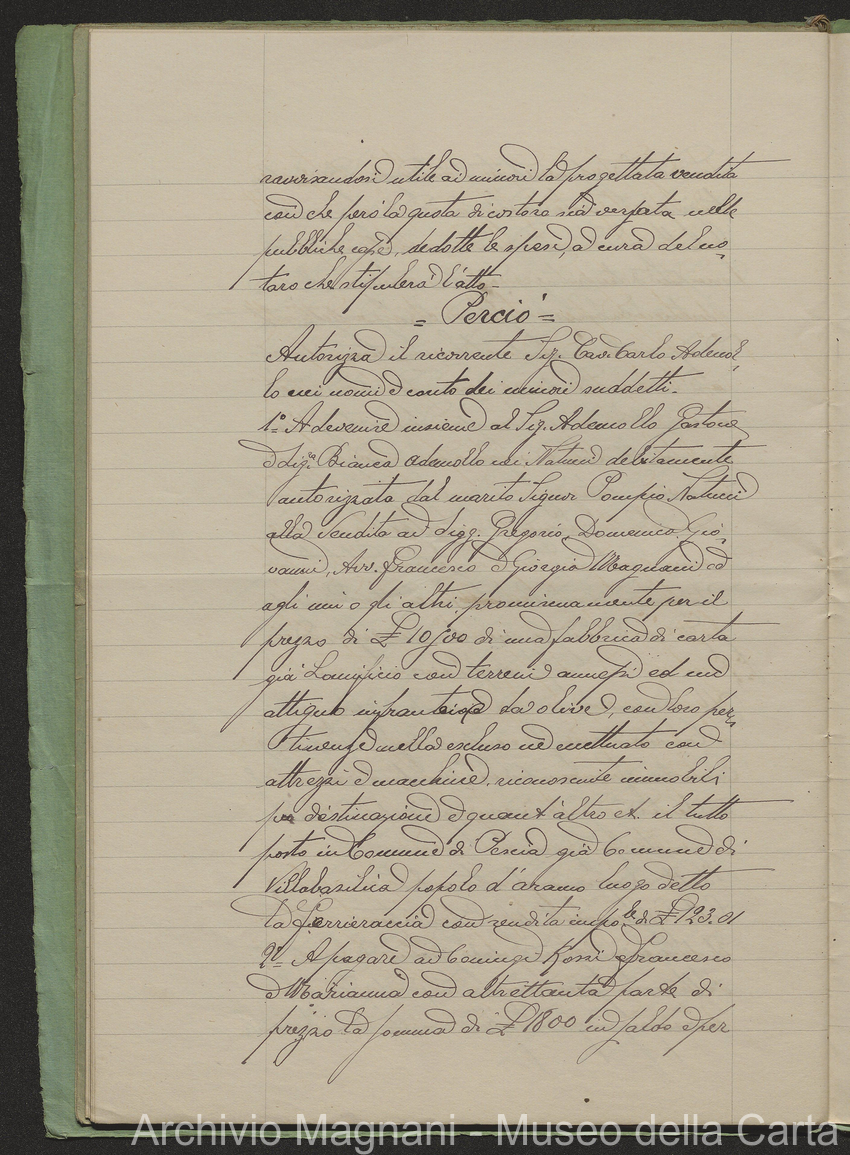 ravvisandosi utile ai minori la progettata vendita
con che però la quota di costoro sia versata nelle
pubbliche casse, dedotte le spese, a cura del no
taro che stipulerà l'atto.
= Perciò =
Autorizza il ricorrente Sig. Cav. Carlo Ademol
lo nei nomi e conto dei minori suddetti.
1° A devenire insieme al Sig. Ademollo Gastone
e Sig.ra Bianca Ademollo nei Natucci debitamente
autorizzata dal marito Signor Pompio Natucci
alla vendita ai Sigg. Gregorio, Domenico, Gio
vanni, Avv. Francesco e Giorgio Magnani od
agli uni o gli altri promiscuamente per il
prezzo di £ 10500 di una fabbrica di carta
già Lanificio con terreni annessi ed un
attiguo infrantoio da olive, con loro per
tinenze nulla escluso nè eccettuato con
attrezzi e macchine riconosciute immobili
per destinazione e quant'altro et. il tutto
posto in Comune di Pescia già Comune di
Villabasilica popolo d'aramo luogo detto
la Ferrieraccia con rendita impo.le di £ 123.01
2° A pagare ai Coniugi Rossi Francesco
e Marianna con altrettanta parte di
prezzo la somma di £ 1800 in saldo e per
Archivio Magnani - Museo della Carta